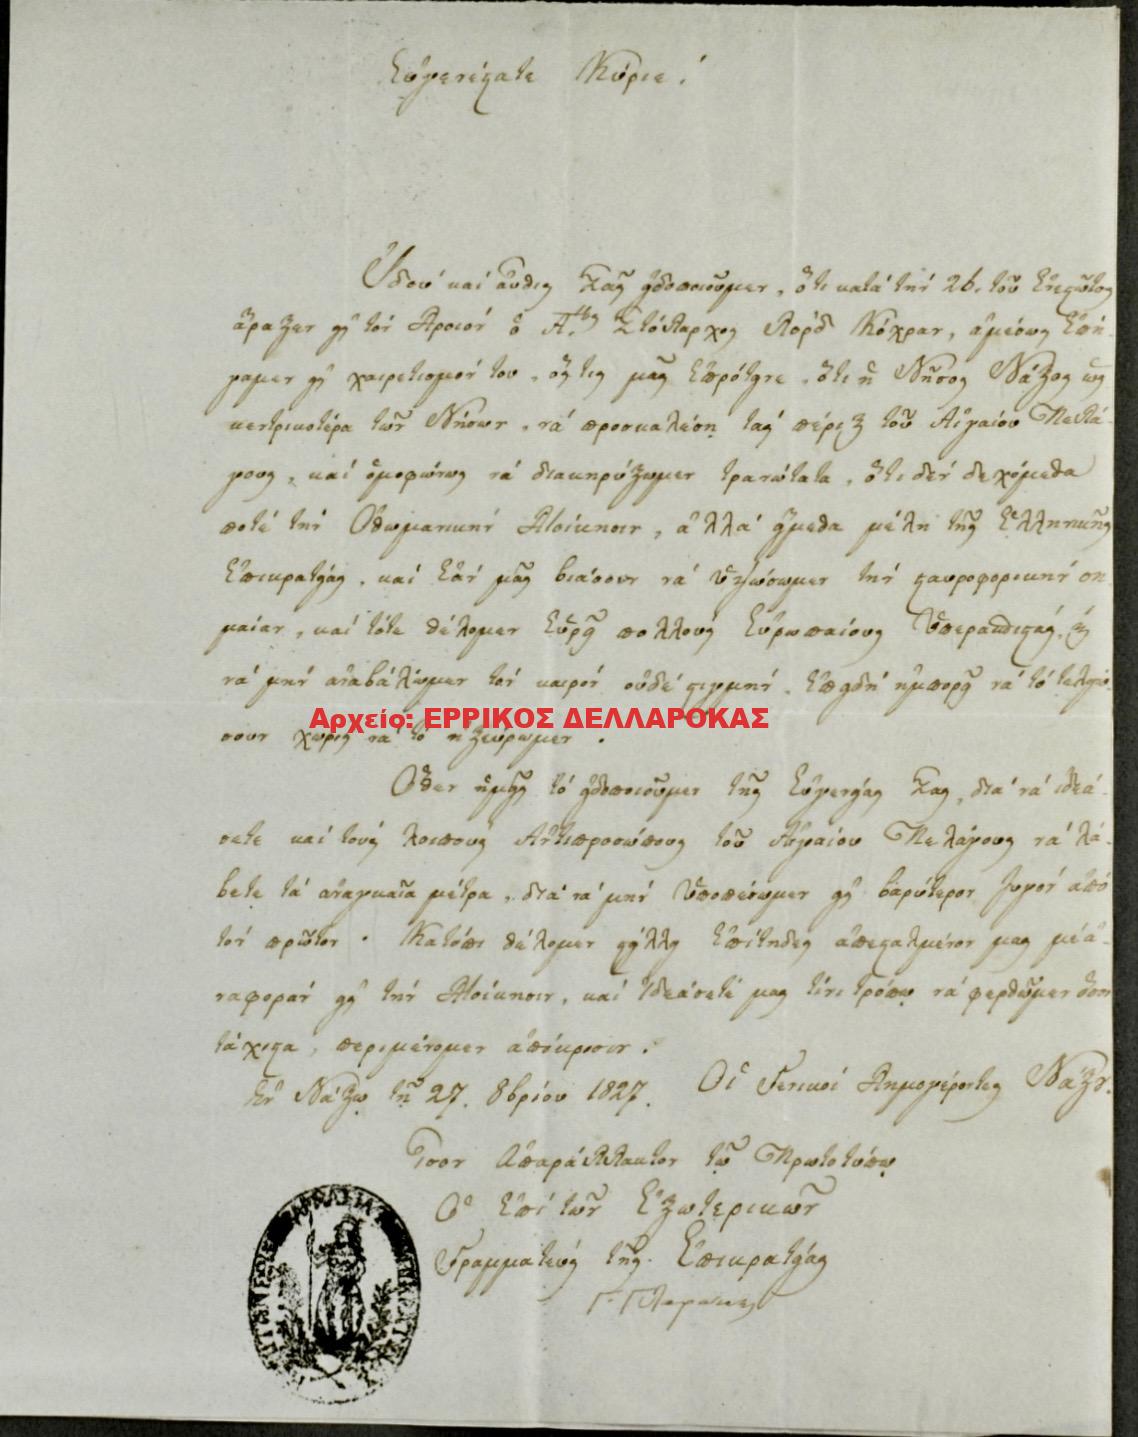 Εὐγενέστατε Κύριε!
Ἰδού καί αὖθις Σᾶς εἰδοποιοῦμεν, ὅτι κατά τήν 26. τοῦ Ἐνεστῶτος
ἄραξεν εἰς τόν Δρυον ὁ Α.τος Στόλαρχος Λορδ Κόχραν, ἀμέσως ἐπή-
γαμεν εἰς χαιρετισμόν του, ὅςτις μᾶς ἐπρότεινε, ὅτι ἡ Νῆσος Νάξος ὡς
κεντρικοτέρα τῶν Νήσων, νά προσκαλέσῃ τάς πέριξ τοῦ Αἰγαίου Πελά-
γους, καί ὁμοφώνως νά διακηρύξωμεν τρανώτατα, ὅτι δέν δεχόμεθα
ποτέ τήν Ὀθωμανικήν Διοίκησιν, ἀλλά ἤμεθα μέλη τῆς Ἑλληνικῆς
Ἐπικρατείας, καί ἐάν μᾶς βιάσουν νά ὑψώσωμεν τήν σταυροφορικήν ση-
μαίαν, καί τότε θέλομεν εὕρῃ πολλούς Εὐρωπαίους Ὑπερασπιστάς, καί
νά μήν ἀναβάλωμεν τόν καιρόν οὐδέ στιγμήν, ἐπειδή ἠμπορεῖ νά τό τελειώ-
σουν χωρίς νά το ηξεύρωμεν.
Αρχείο: ΕΡΡΙΚΟΣ ΔΕΛΛΑΡΟΚΑΣ
Ὅθεν ἡμεῖς τό εἰδοποιοῦμεν τῆς Εὐγενείας Σας, διά νά ἰδεά-
σετε καί τούς λοιπούς Ἀντιπροσώπους τοῦ Αἰγαίου Πελάγους νά λά-
βετε τά ἀναγκαῖα μέτρα, διά νά μήν ὑποπέσωμεν εἰς βαρύτερον ζυγόν ἀπό
τόν πρῶτον. Κατόπι θέλομεν στείλῃ ἐπίτηδες ἀπεσταλμένον μας μέ ἀ-
ναφοράν εἰς τήν Διοίκησιν, καί ἰδεάσετέ μας τίνι τρόπῳ νά φερθῶμεν ὅσον
τάχιστα, περιμένομεν ἀπόκρισιν.
Ἐν Νάξῳ τῇ 27. 8βρίου 1827. Οἱ Γενικοί Δημογέροντες Νάξου.
Ἴσον Ἀπαράλλακτον τῷ Πρωτοτύπῳ
Ὁ Ἐπί τῶν Ἐξωτερικῶν
Γραμματεύς τῆς Ἐπικρατείας
Γ. Γλαρακης